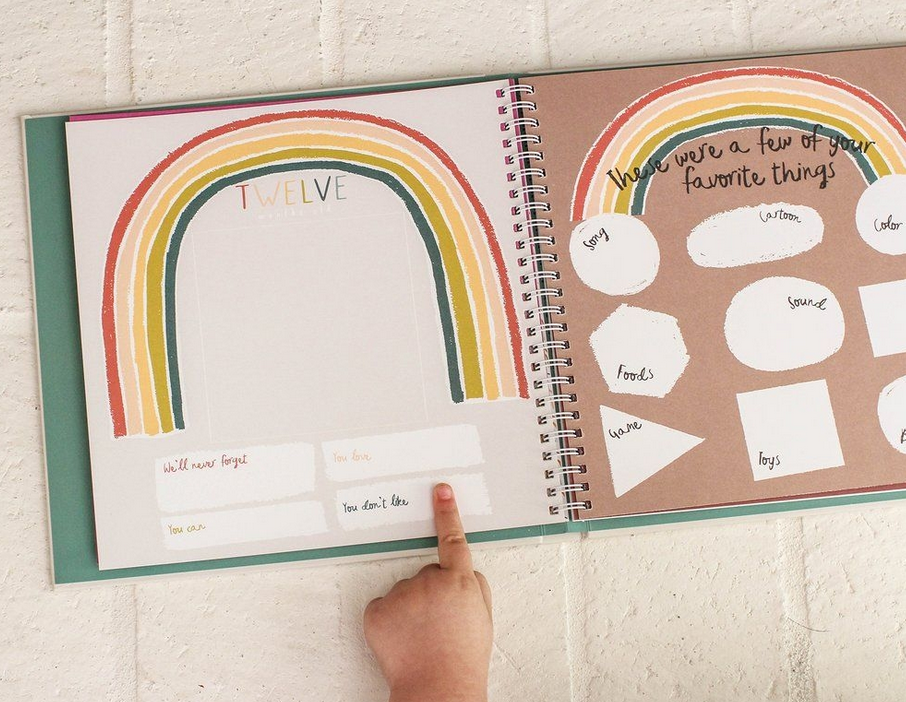 TWELVE
We'll never forget
You love
You can
You don't like
These were a few of your
favorite things
Song
Cartoon
Color
Foods
Sound
Game
Toys